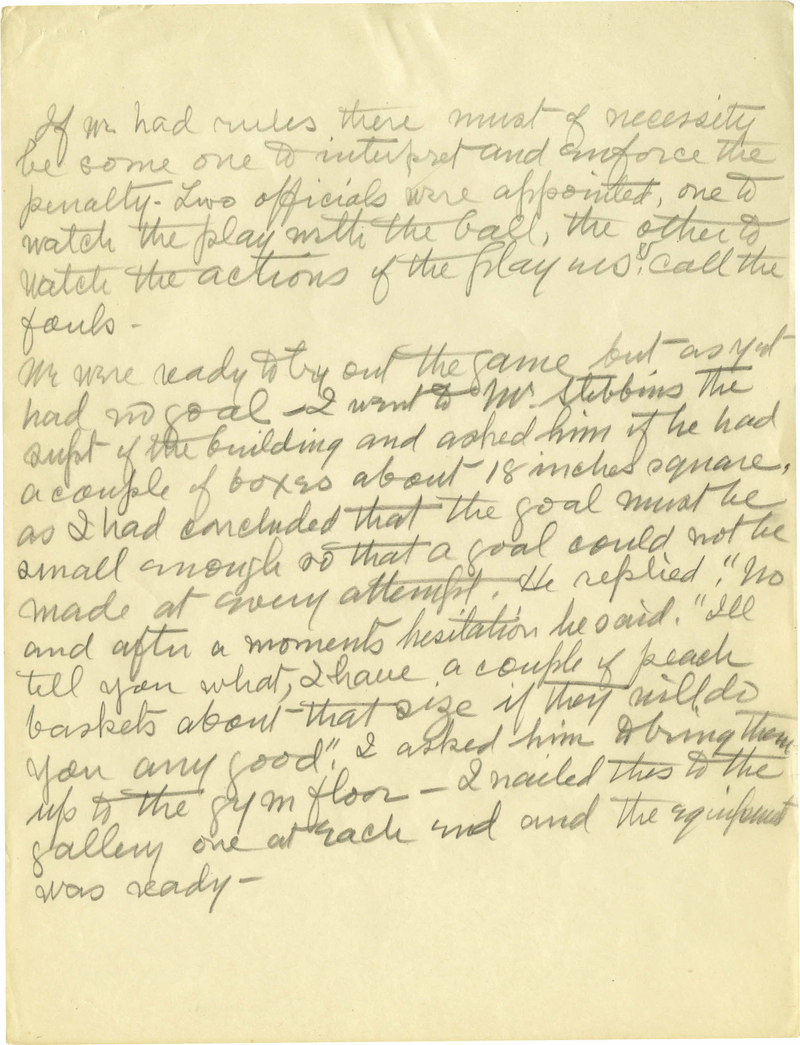 If we had rules there must of necessity
be some one to interpret and enforce the
penalty. Two officials were appointed, one to
watch the play with the ball, the other to
watch the actions of the players & call the
fouls -
We were ready to try out the game but as yet
had no goal - I went to Mr. Stebbins the
supt of the building and asked him if he had
a couple of boxes about 18 inches square,
as I had concluded that the goal must be
small enough so that a goal could not be
made at every attempt. He replied, "No
and after a moments hesitation he said. "Ill
tell you what, I have a couple of peach
baskets about that size if they will do
you any good". I asked him to bring them
up to the gym floor - I nailed this to the
gallery one at each end and the equipment
was ready -